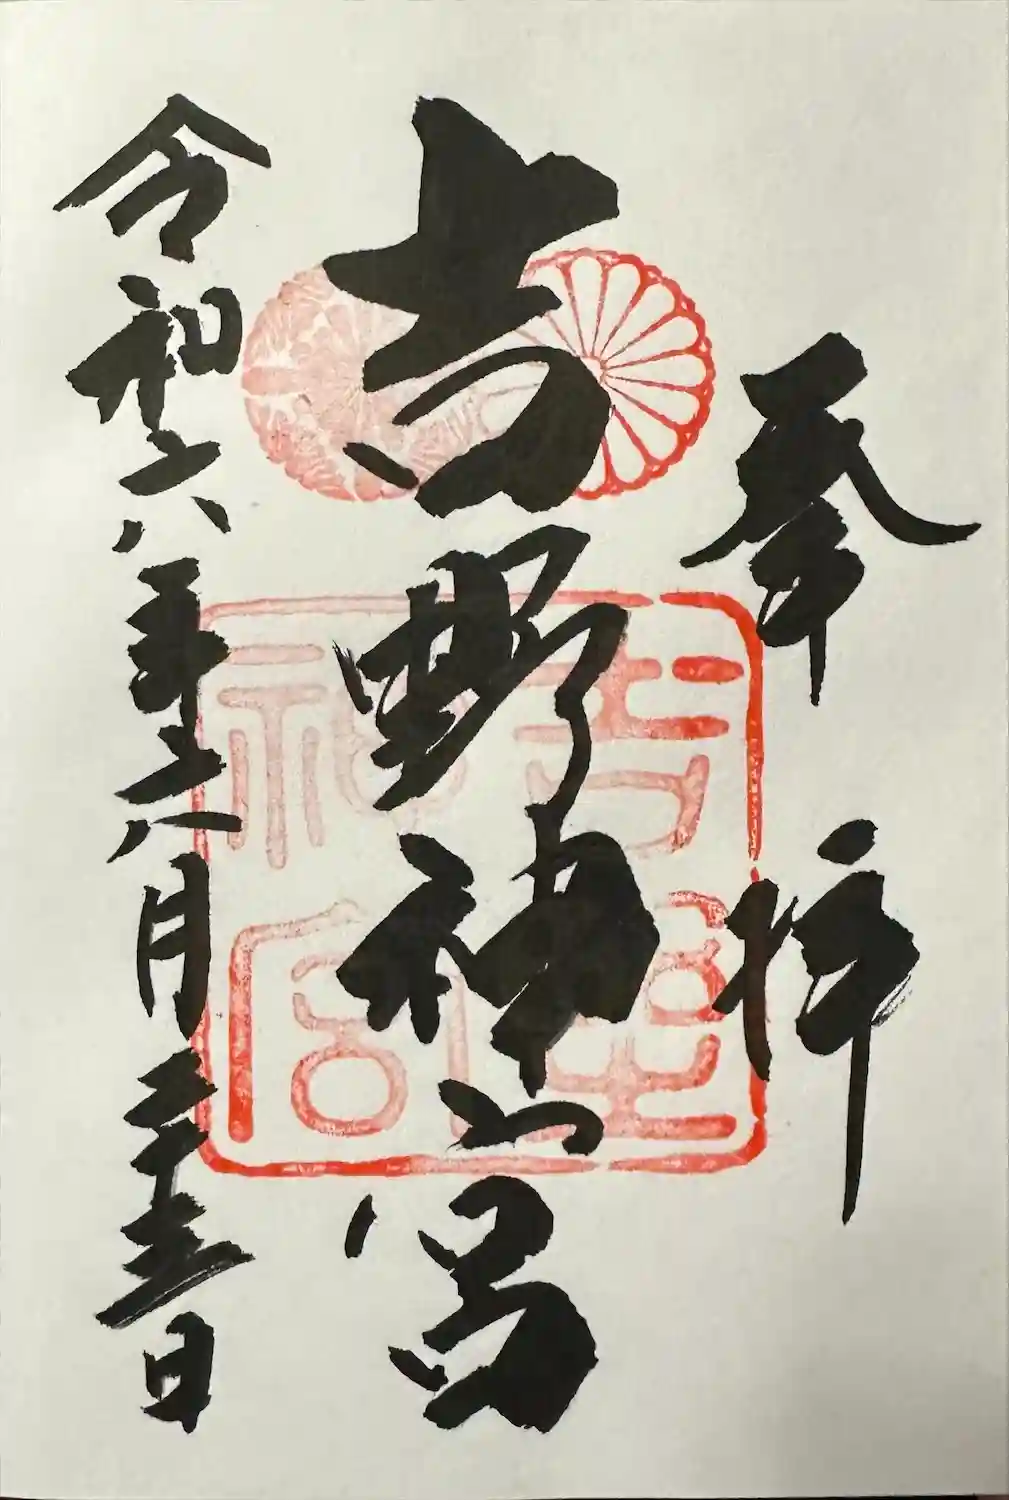 奉拝
吉野神宮
吉野神宮
令和六年六月二十五日